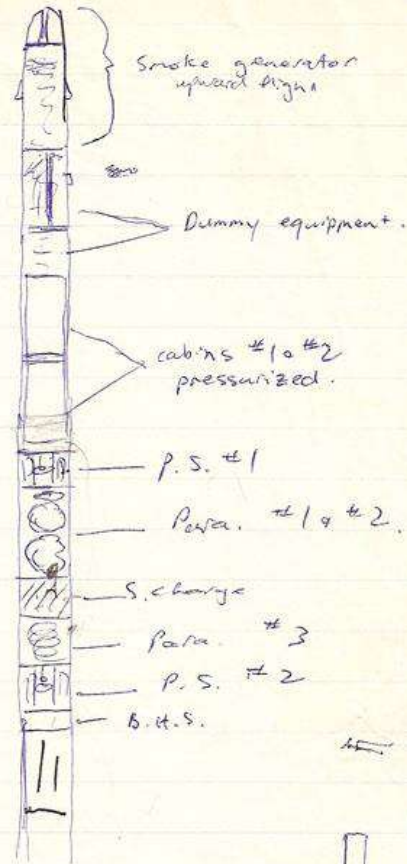 Smoke generator
upward
Dummy equipment.
cabins #1 & #2
pressurized.
P.S. #1
Para. #1 & #2.
S. charge
Para. #3
P.S. #2
B.H.S.